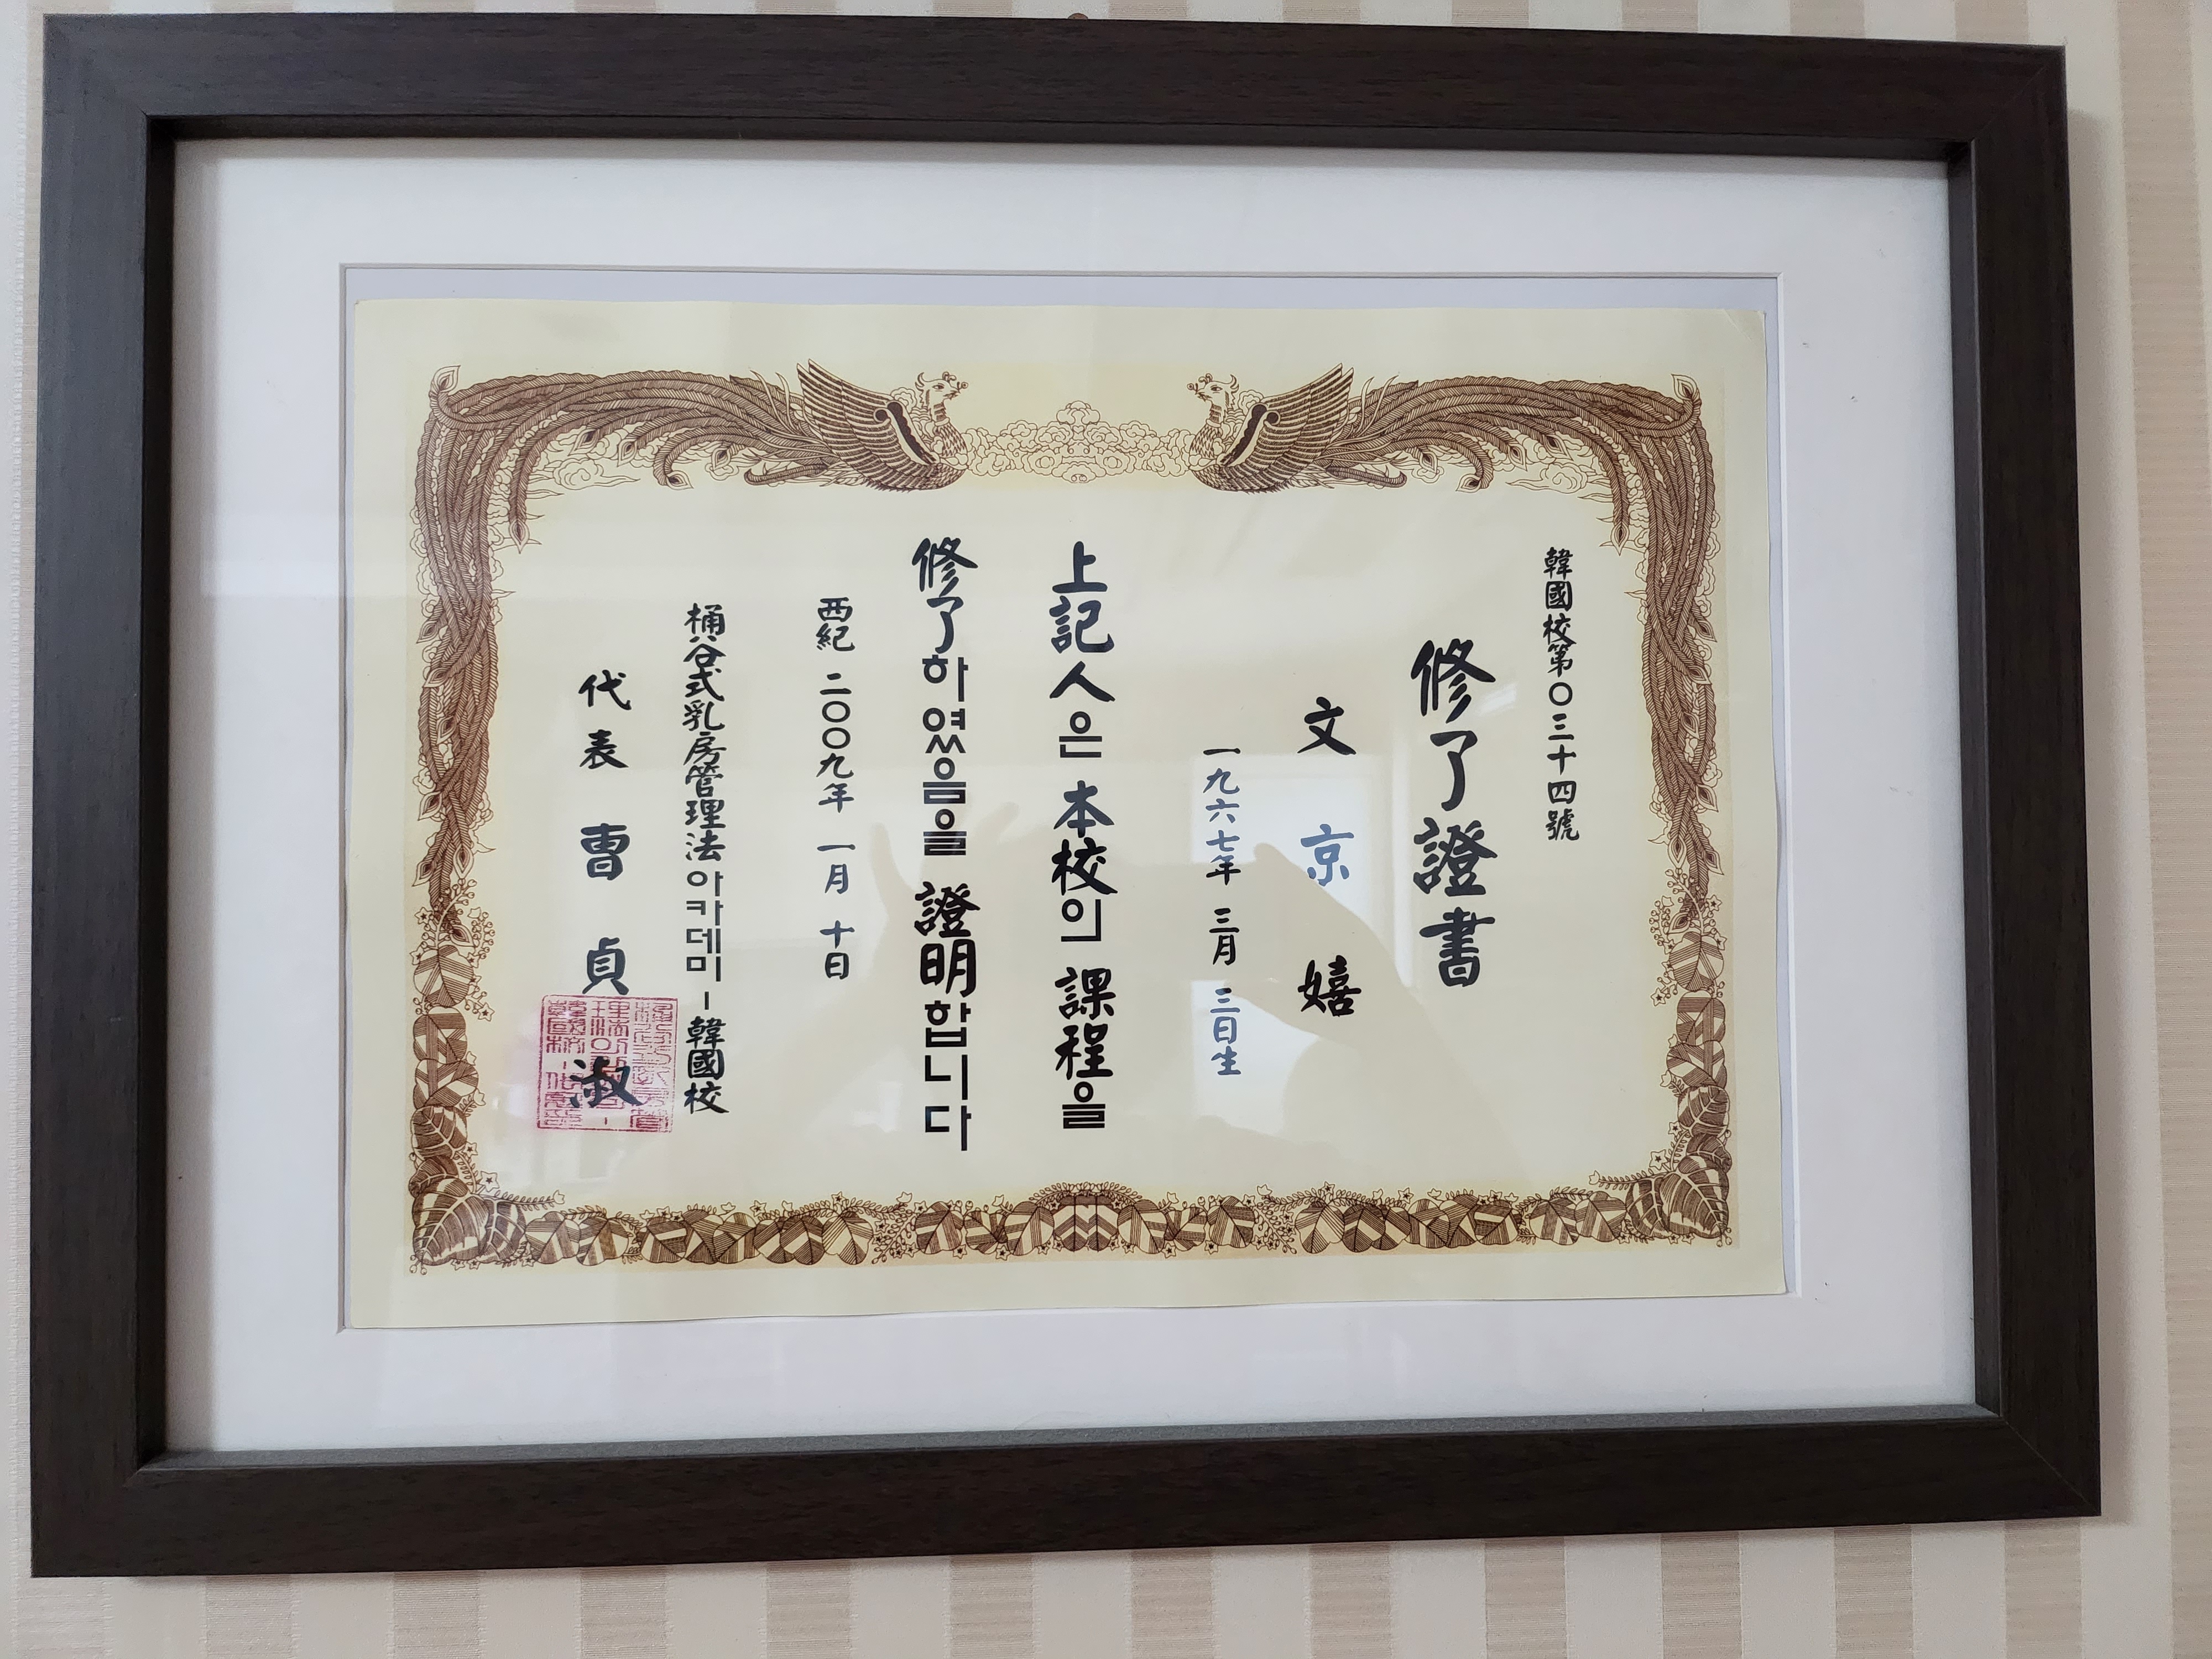 韓國校第〇三十四號
修了證書
文京嬉
一九六七年 三月 三日生
上記人은 本校의 課程을
修了하였음을 證明합니다
西紀 二〇〇九年 一月 十日
桶谷式乳房管理法아카데미-韓國校
代表 曺貞淑